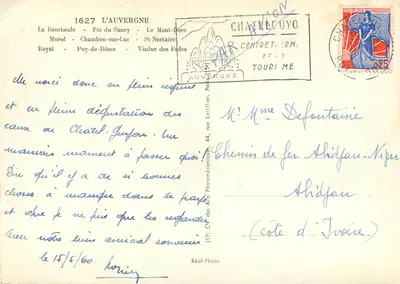 1627 L'AUVERGNE
La Bourboule - Pic du Sancy - Le Mont-Dore
Murol - Chambon-sur-Lac - St Nectaire
Royat - Puy-de-Dôme - Viaduc des Fades
CHATELGUYO
CENTRE THERM.
ET
TOURISME
AUVERGNE
PAR AVION
Me voici donc en plein régime
et en pleine dégustation des
eaux de Chatel-Guyon. Un
mauvais moment à passer quoi !
Dire qu'il y a de si bonnes
choses à manger dans le pays
et que je ne puis que les regarder
Avec notre bien amical souvenir
le 15/5/60
Mr Mme Defontaine
Chemin de fer Abidjan-Niger
Abidjan
(Côte d'Ivoire)
Réal-Photo